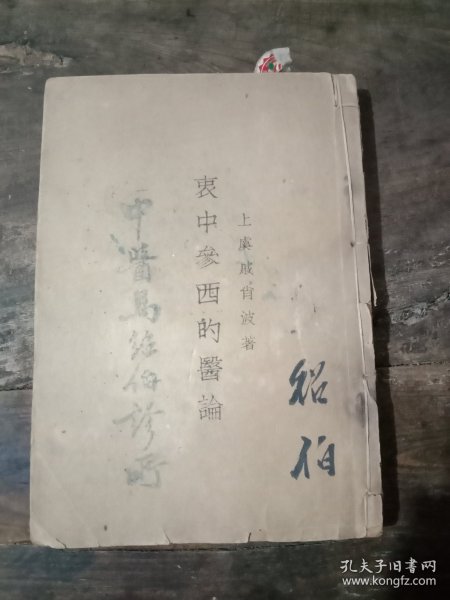 上虞戚肖波著
衷中參西的醫論
紹伯
中醫馬紹伯診所
孔夫子旧书网
www.kongfz.com